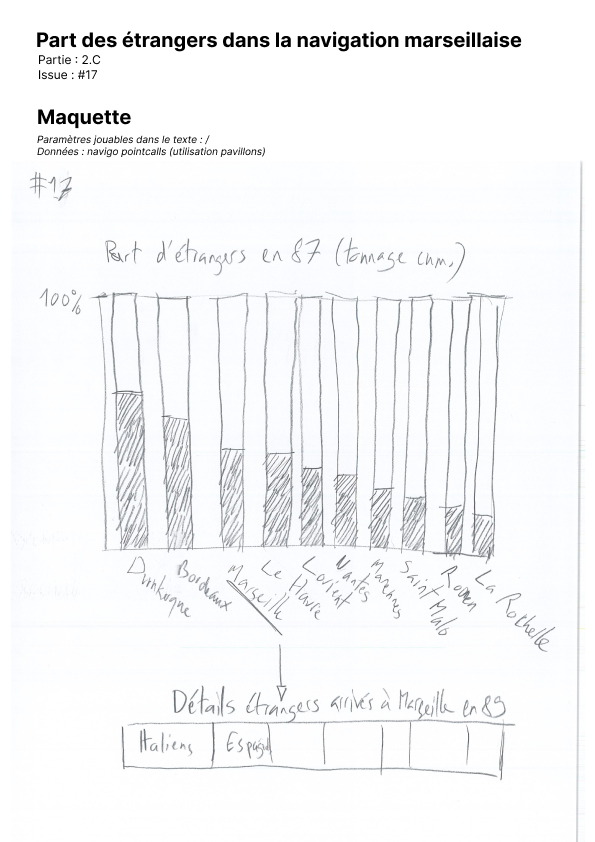 Part des étrangers dans la navigation marseillaise
Partie : 2.C
Issue : #17
Maquette
Paramètres jouables dans le texte : /
Données : navigo pointcalls (utilisation pavillons)
#17
Part d'étrangers en 87 (tonnage cum.)
100%
Dunkerque
Bordeaux
Marseille
Le Havre
Lorient
Nantes
Marennes
Saint Malo
Rouen
La Rochelle
Détails étrangers arrivés à Marseille en 89
Italiens Espagnol